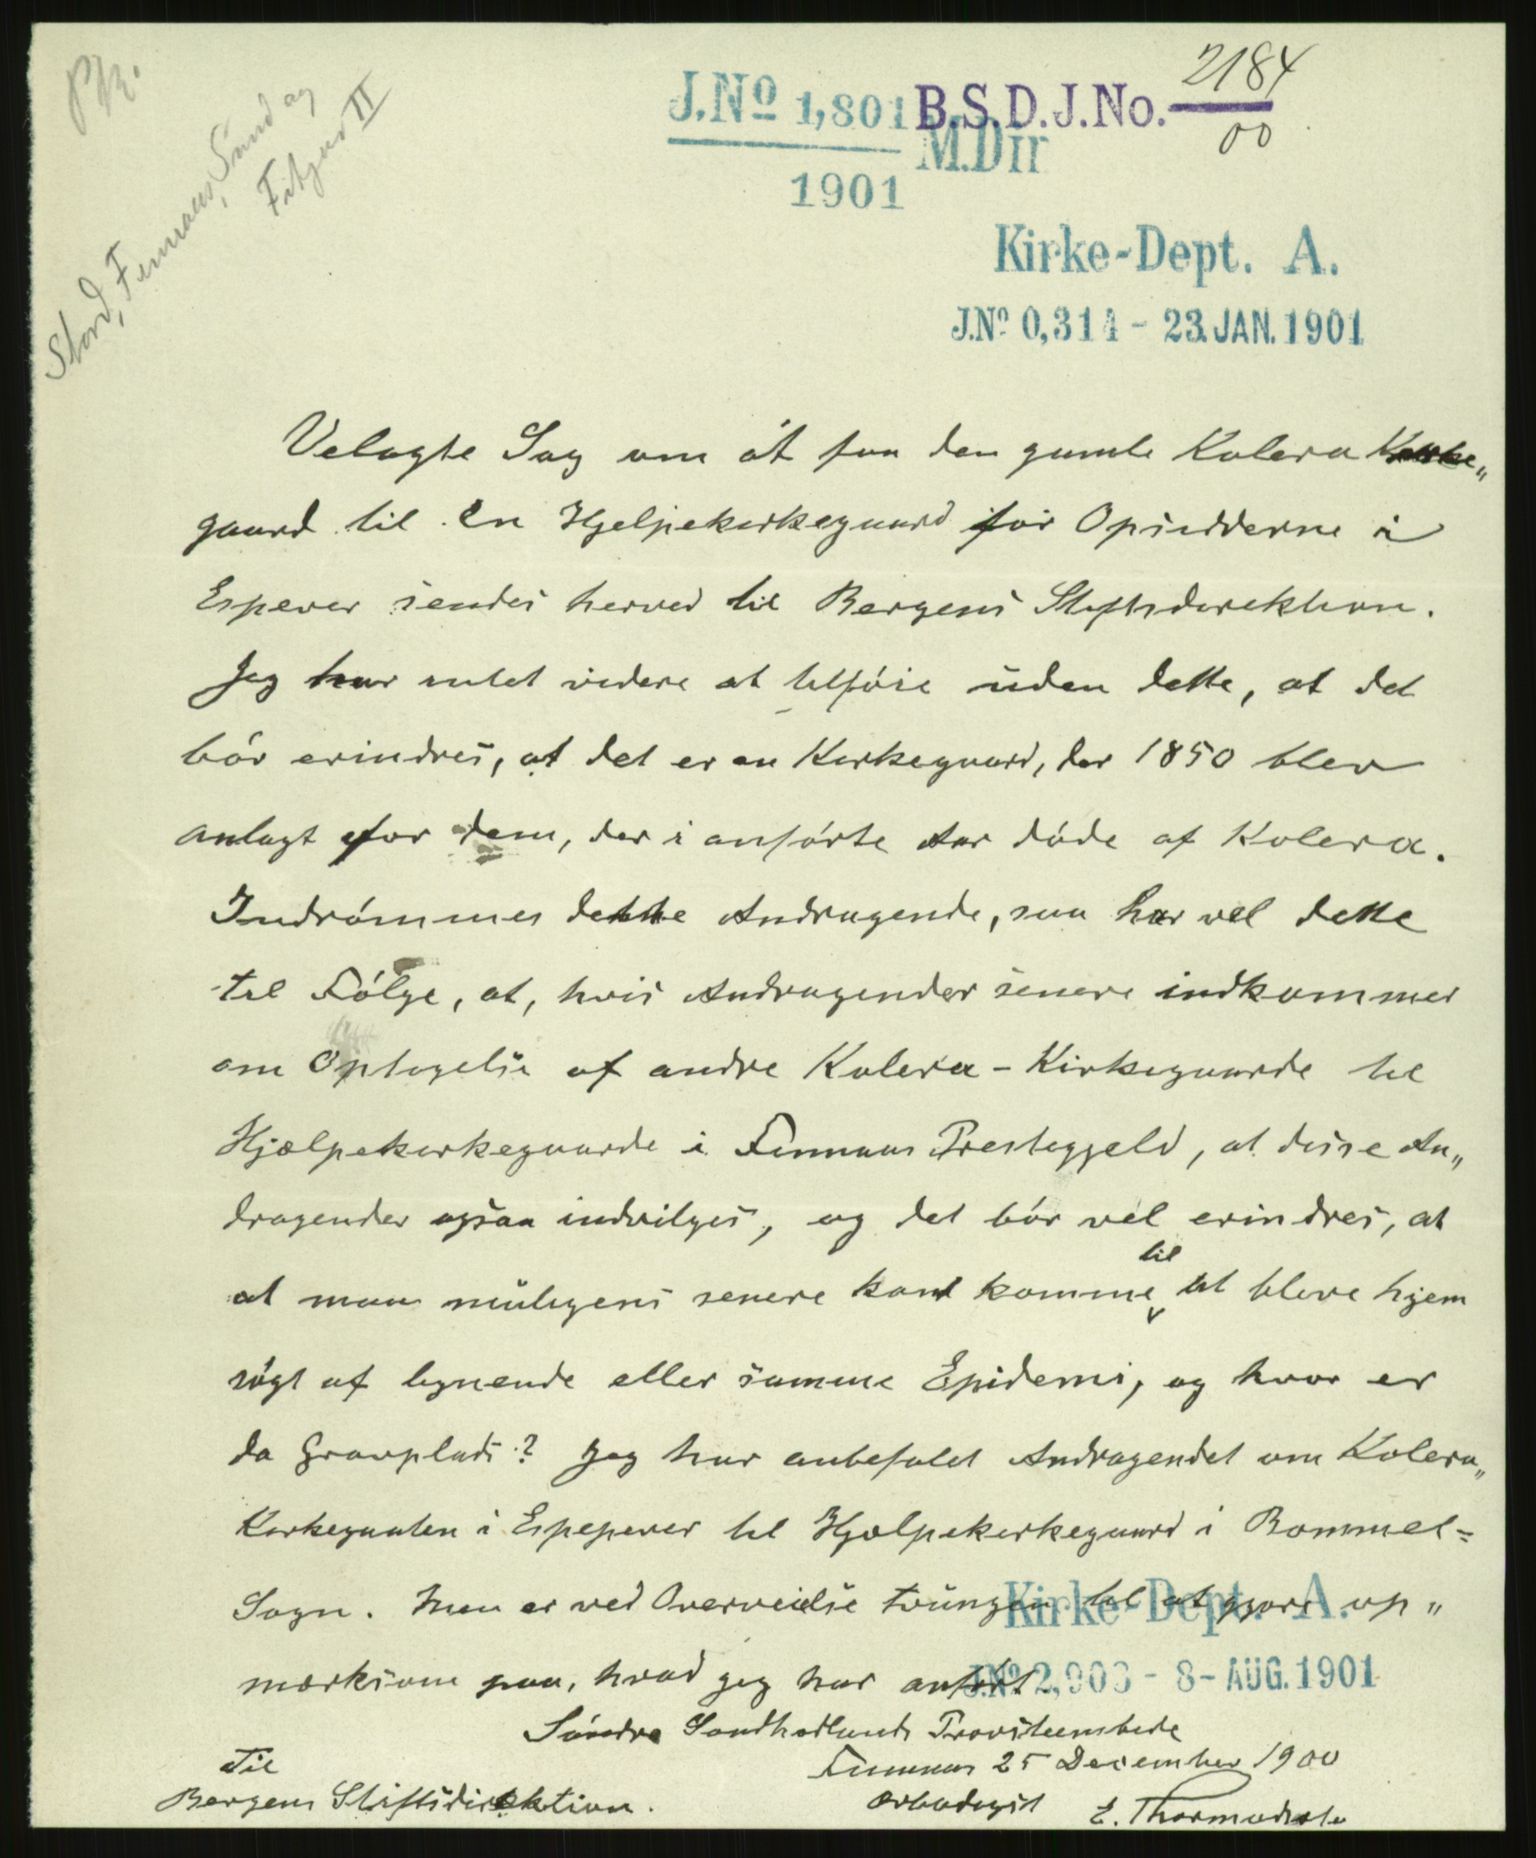 PK.
Stord, Finnaas, Sund og
Fitjar II
J.Nº 1,801 B.S.D.J.No. 2184
00
M.Dir
1901
Kirke-Dept. A.
J.Nº 0,314 - 23.JAN.1901
Velagte Sag om at faa den gamle Kolera Kirke„
gaard til en Hjelpekirkegaard for Opsidderne i
Espever sendes herved til Bergens Stiftsdirektion.
Jeg har intet videre at tilföie uden dette, at det
bör erindres, at det er en Kirkegaard, der 1850 blev
anlagt for dem, der i anförte Aar döde af Kolera.
Indrömmes dette Andragende, saa har vel dette
til Fölge, at, hvis Andragender senere indkommer
om Optagelse af andre Kolera-Kirkegaarde til
Hjælpekirkegaarde i Finnaas Prestegjeld, at disse An„
dragender ogsaa indvilges, og det bör vel erindres, at
at man muligens senere kan komme til at blive hjem
sögt af lignende eller samme Epidemi, og hvor er
da Gravplads? Jeg har anbefalet Andragendet om Kolera„
Kirkegaaten i Espepever til Hjælpekirkegaard i Bommel=
Sogn. Men er ved Overveielse tvungen til at gjöre op„
mærksom paa, hvad jeg har anfört.
Kirke-Dept. A.
J.Nº 2,903 - 8-AUG.1901
Söndre Söndhordlands Provsteembede
Finnaas 25 December 1900
Til
Bergens Stiftsdirektion.
Ærbödigst
E. Thormodsæter